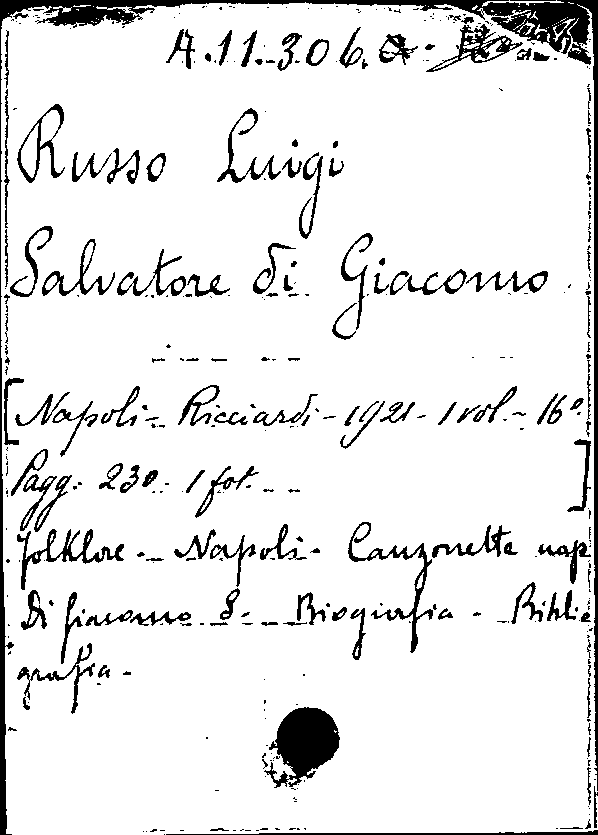 A.11.306.
Russo Luigi
Salvatore di Giacomo
[Napoli - Ricciardi - 1921 - 1 vol. - 16º.
Pagg. 230. 1 fot. ]
folklore - Napoli - Canzonette nap
Di Giacomo S. - Biografia - Biblio
grafia -